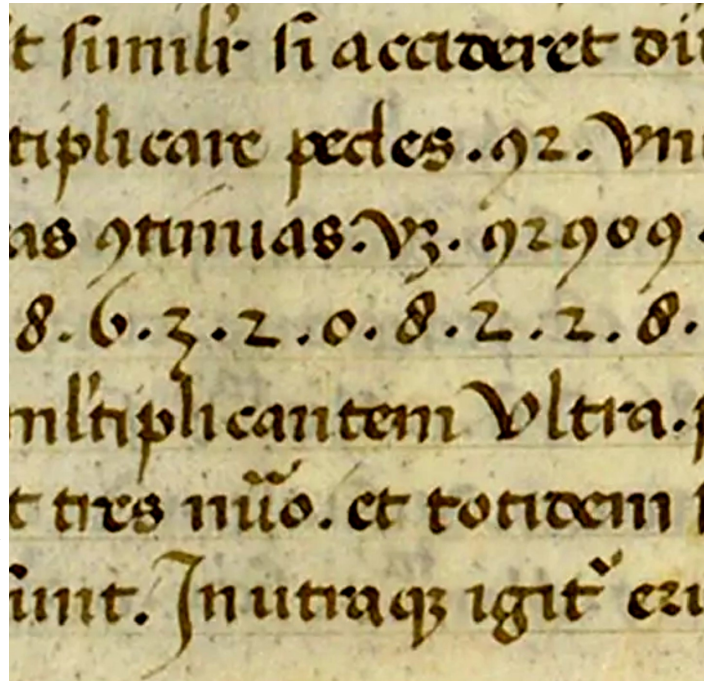 t similr si accideret
tiplicare pedes . 92 . Vn
as 9tinuas . Vʒ . 92909 .
8 . 6 . 3 . 2 . 0 . 8 . 2 . 2 . 8 .
ml'tiplicantem Vltra .
t tres nūo . et totidem
sunt . In utraqʒ igit